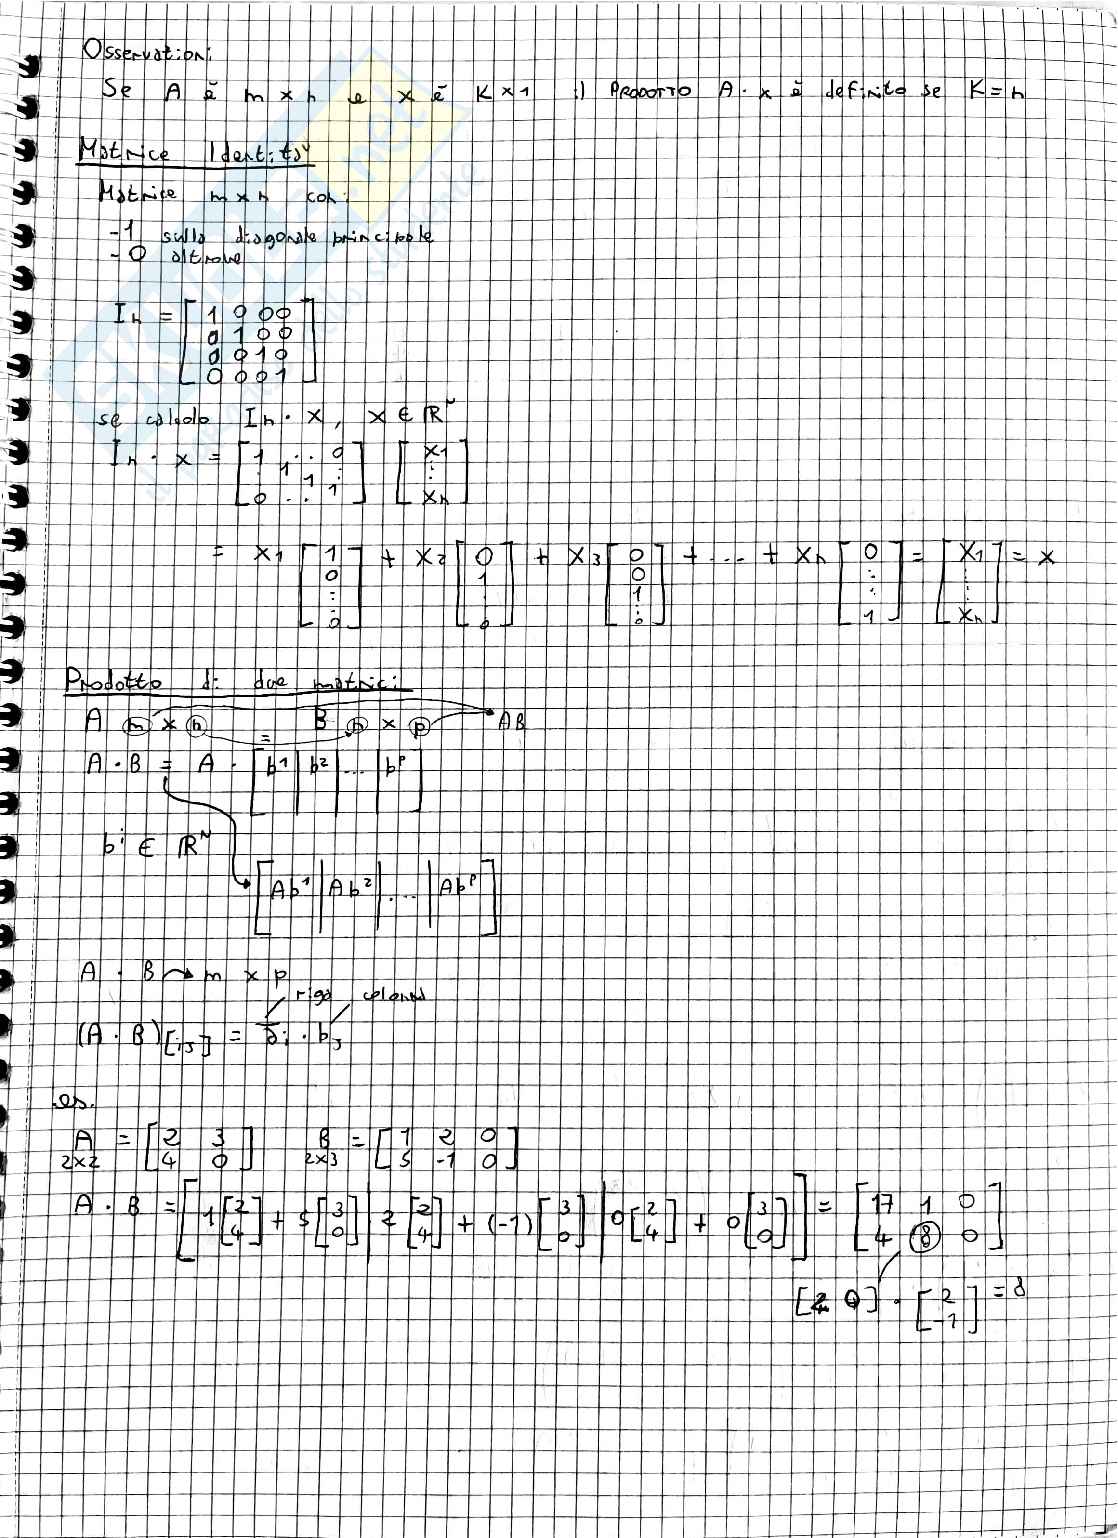 Osservazioni
Se A è m x n e x è K x 1 il PRODOTTO A · x è definito se K = n
Matrice Identità
Matrice m x n con:
-1 sulla diagonale principale
-0 altrove
In = [1 0 0 0
0 1 0 0
0 0 1 0
0 0 0 1]
se calcolo In · x, x ∈ ℝᴺ
In · x = [1 . . 0
. 1 1 .
0 . . 1] [x1
⋮
xn]
= x1 [1 0 ⋮ 0] + x2 [0 1 ⋮ 0] + x3 [0 0 1 ⋮ 0] + .... + xn [0 ⋮ 1] = [x1 ⋮ xn] = x
Prodotto di due matrici
A m x n = B n x p AB
A · B = A · [b¹ | b² | ... | bᵖ]
bⁱ ∈ ℝᴺ
[Ab¹ | Ab² | ... | Abᵖ]
A · B → m x p
riga colonna
(A · B)[ij] = āi · bj
es.
A = [2 3 B = [1 2 0
2x2 4 0] 2x3 5 -1 0]
A · B = [1 [2 4] + 5 [3 0] | 2 [2 4] + (-1) [3 0] | 0 [2 4] + 0 [3 0]] = [17 1 0
4 8 0]
[4 0] · [2 -1] = 8